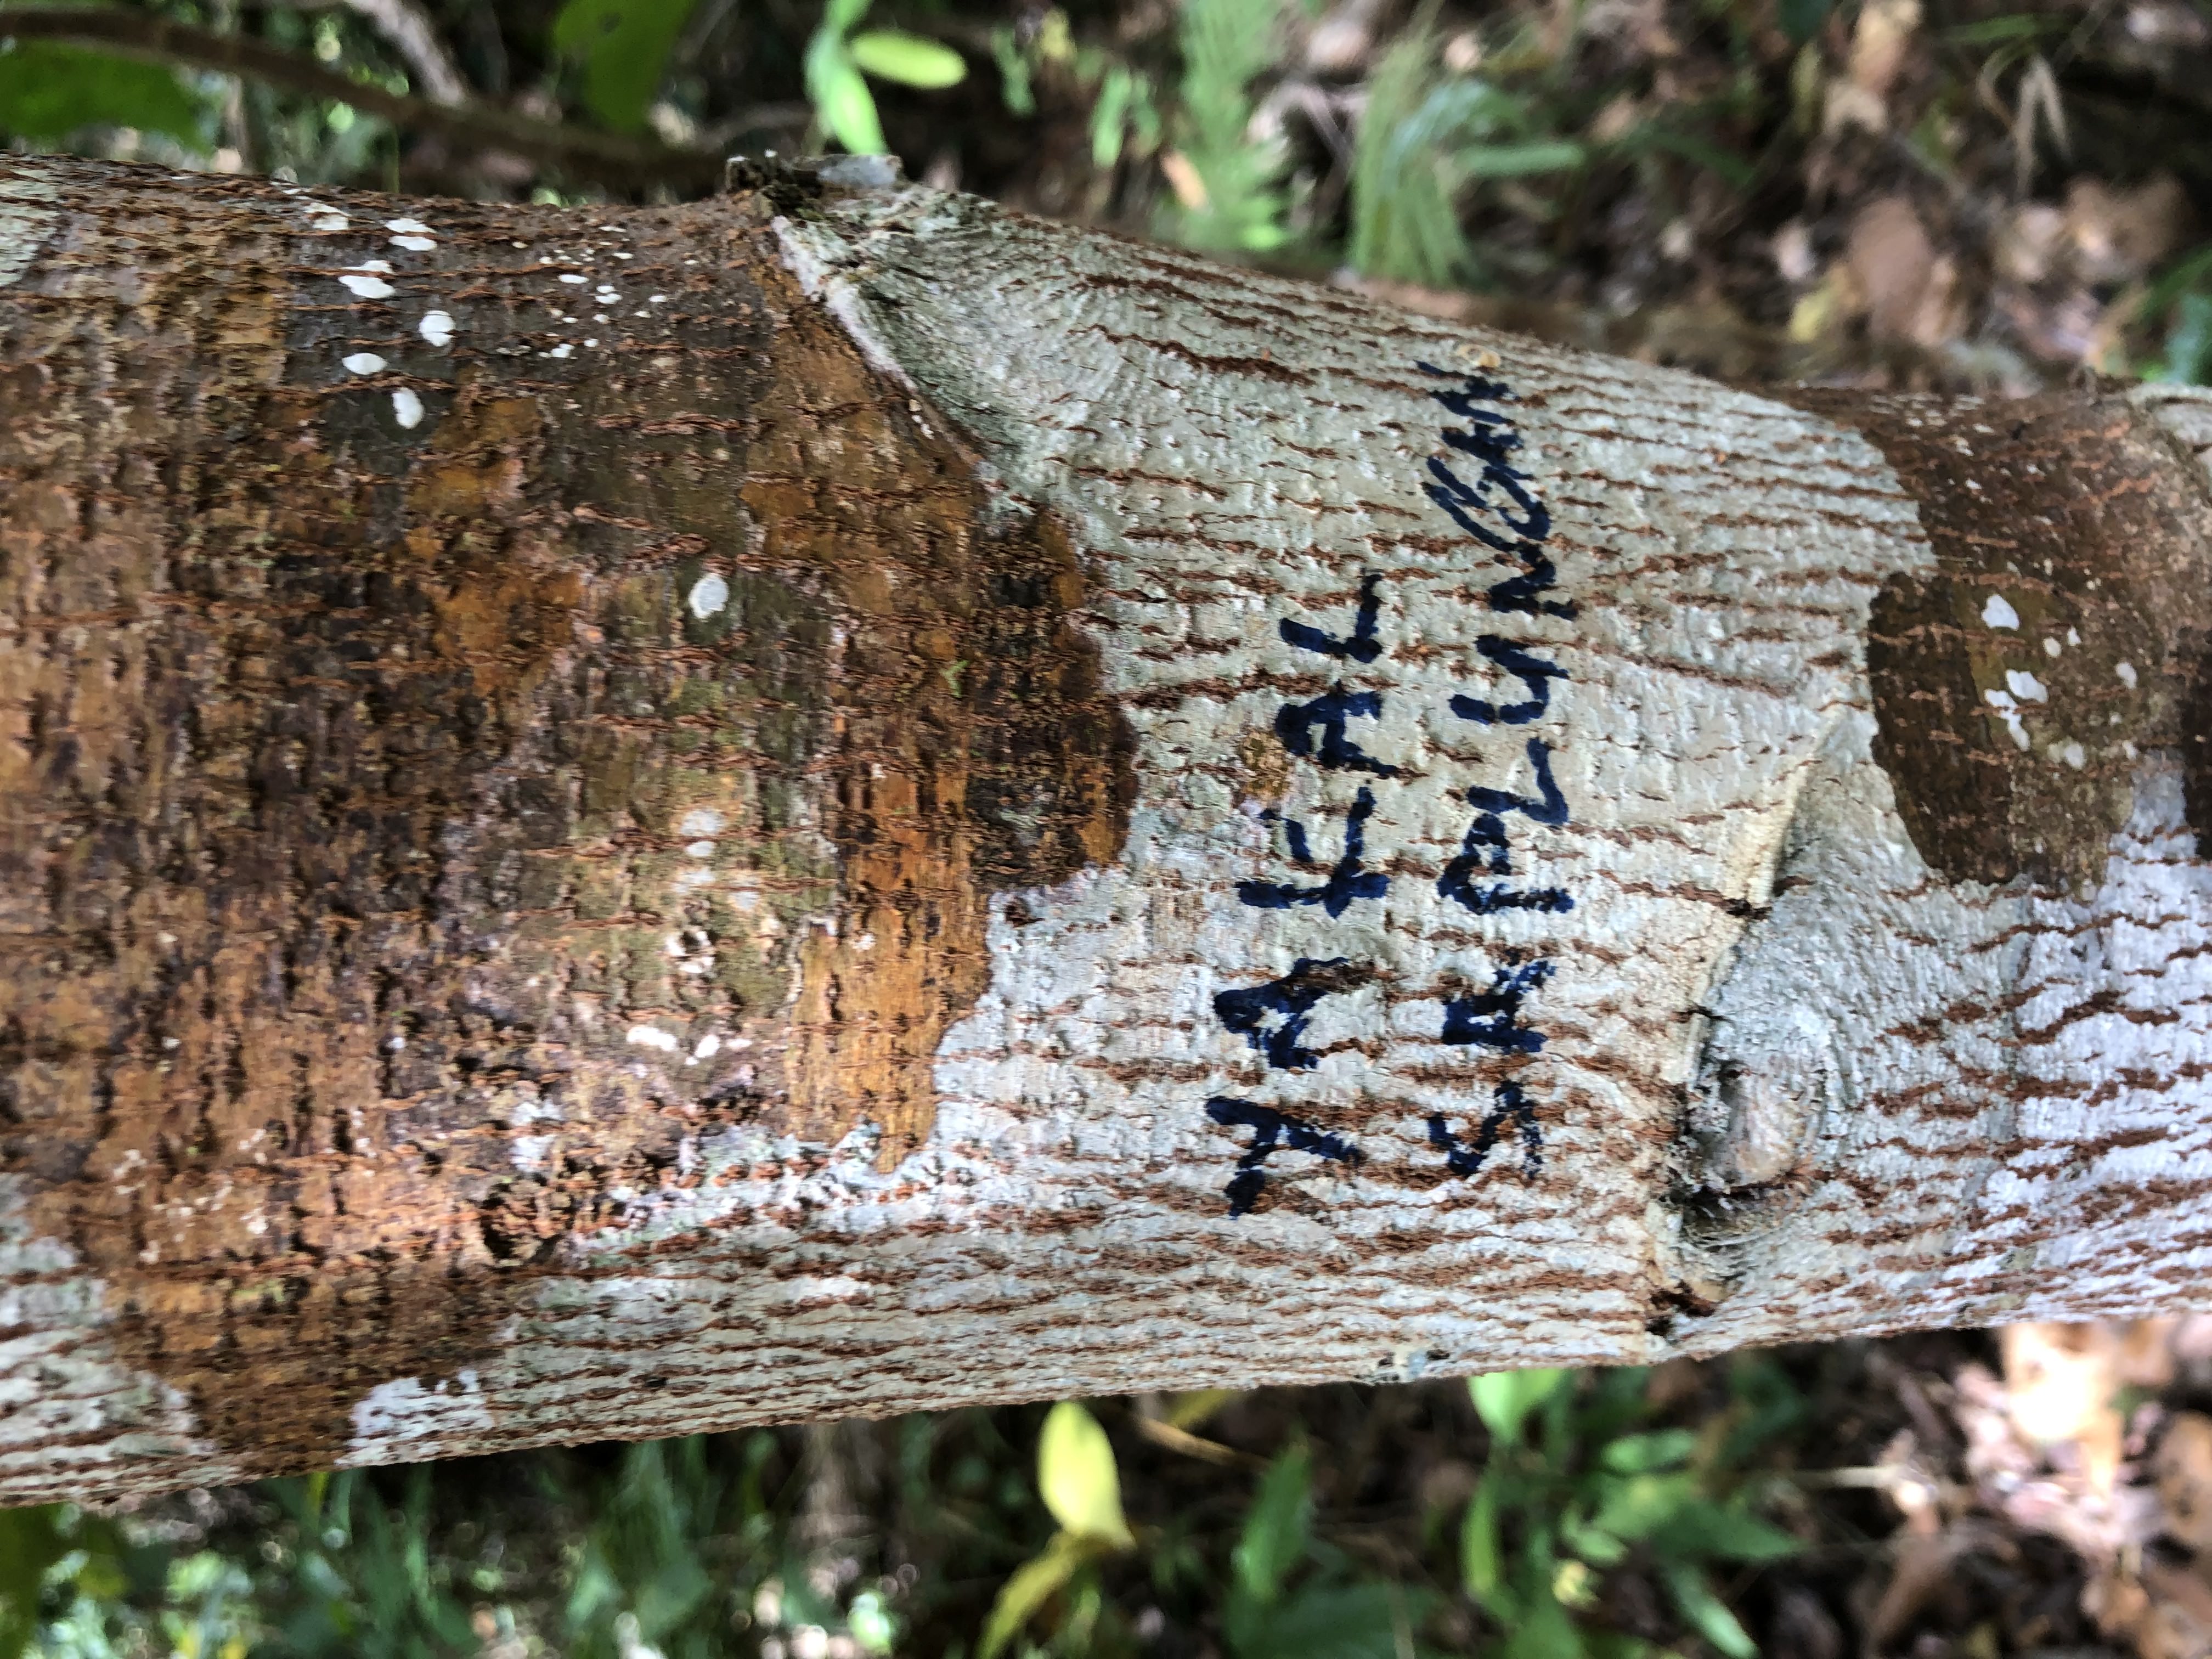 YAKAL
SAPLUNGAN